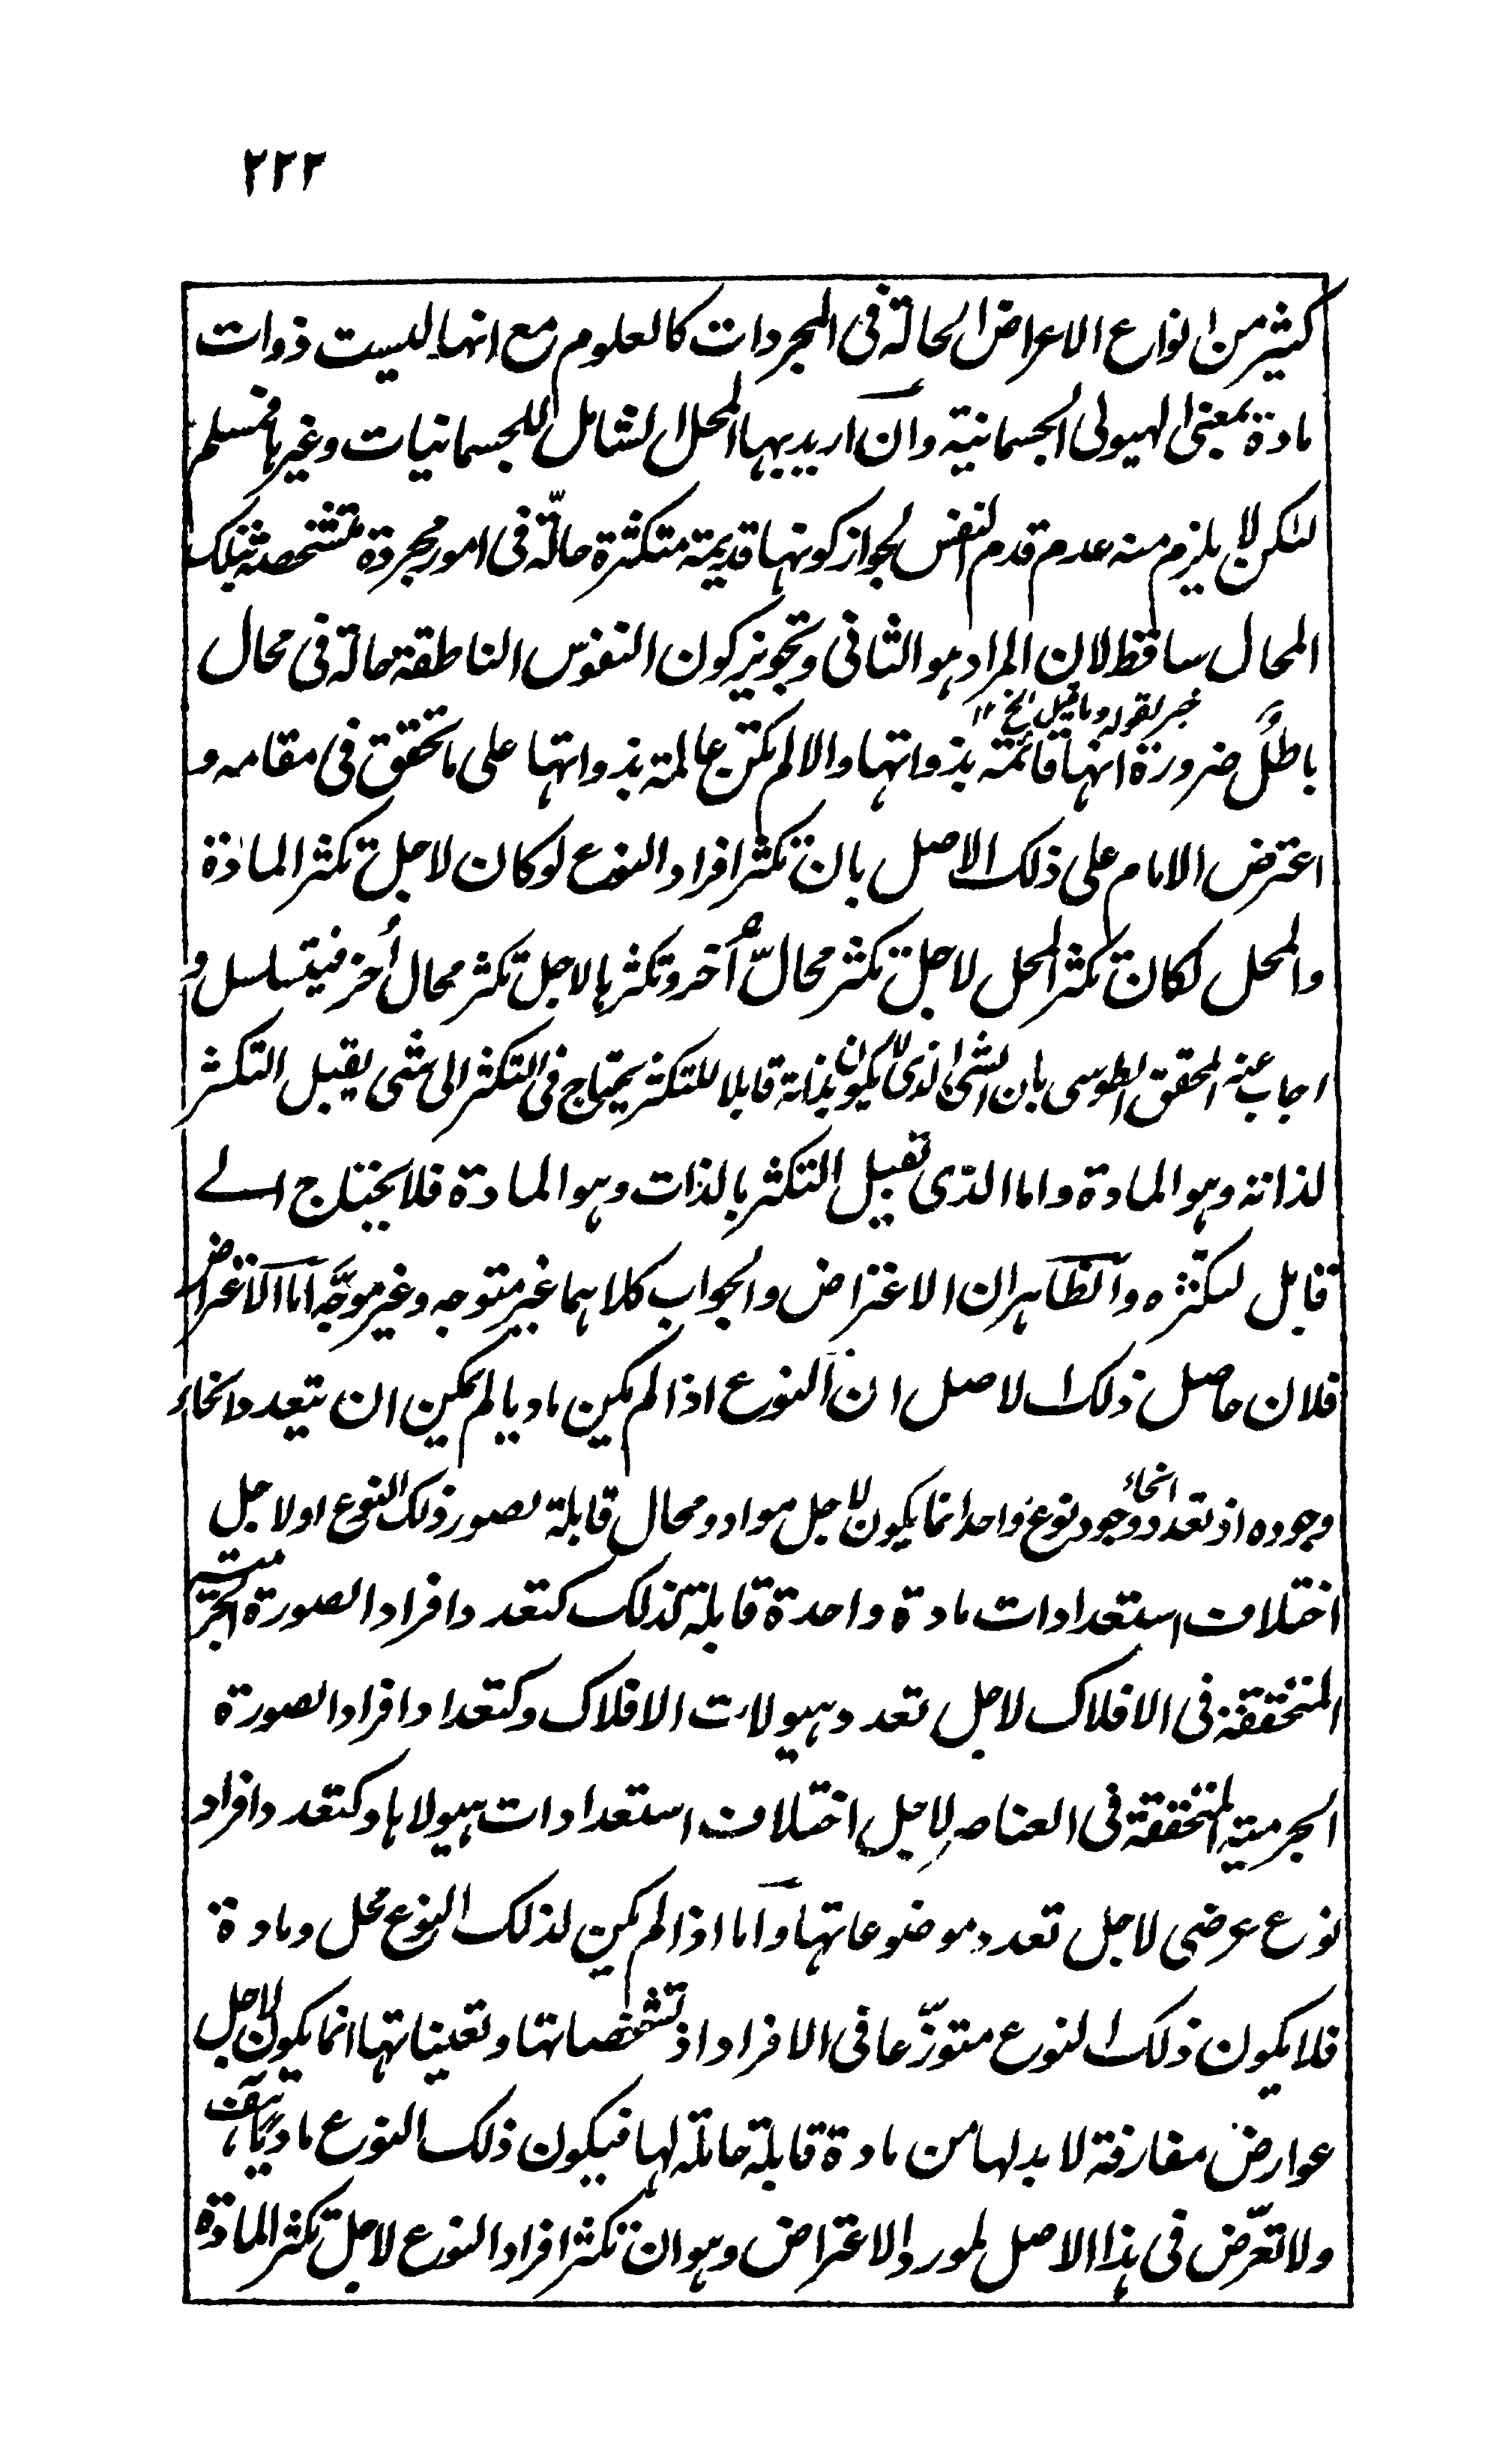 ٢٢٢
كثير من انواع الاعراض الحالة فى المجردات كالعلوم مع انها ليست ذوات
مادة بمعنى الهيولى الجسمانية وان اريد بها المحل الشامل للجسمانيات وغيرها فمسلم
لكن لا يلزم منه عدم قدم النفس لجواز كونها قديمة متكثرة حالّة فى امور مجردة متشخصة بتلك
المحال ساقط لان المراد هو الثانى وتجويز كون النفوس الناطقة حالة فى محال
خبر لقوله وما قيل الخ ١٢
باطلٌ ضرورة انها قائمة بذواتها والا لم تكن عالمة بذواتها على ما تحقق فى مقامه و
اعترض الامام على ذلك الاصل بان تكثر افراد النوع لو كان لاجل تكثر المادة
والمحل لكان تكثر المحل لاجل تكثر محالّ أُخر وتكثرها لاجل تكثر محال أُخر فيتسلسل و
اجاب عنه المحقق الطوسى بان الشئ الذى لا يكون بذاته قابلا للتكثر يحتاج فى التكثر الى شئ يقبل التكثر
لذاته وهو المادة واما الذى تقبل التكثر بالذات وهو المادة فلا يحتاج الے
قابل لتكثره والظاهر ان الاعتراض والجواب كلاهما غير متوجه وغير موجَّه اما الاعتراض
فلان حاصل ذلك الاصل ان النوع اذا لم يكن ماديا لم يمكن ان يتعدد انحاء
وجوده اذ تعدد انحاء وجود نوع واحد انما يكون لاجل مواد ومحال قابلة لصور ذلك النوع او لاجل
اختلاف استعدادات مادة واحدة قابلة كذلك كتعدد افراد الصورة الجرمية
المتحققة فى الافلاك لاجل تعدد هيولات الافلاك وكتعداد افراد الصورة
الجرمية المتحققة فى العناصر لاجل اختلاف استعدادات هيولاها وكتعدد افراد
نوع عرضى لاجل تعدد موضوعاتها واما اذا لم يكن لذلك النوع محل ومادة
فلا يكون ذلك النوع متوزّعا فى الافراد اذ تشخصاتها وتعيناتها انما يكون لاجل
عوارض مفارقة لا بد لها من مادة قابلة حاملة لها فيكون ذلك النوع ماديًّا هف
ولا تعرّض فى هذا الاصل لمورد الاعتراض وهو ان تكثر افراد النوع لاجل تكثر المادة